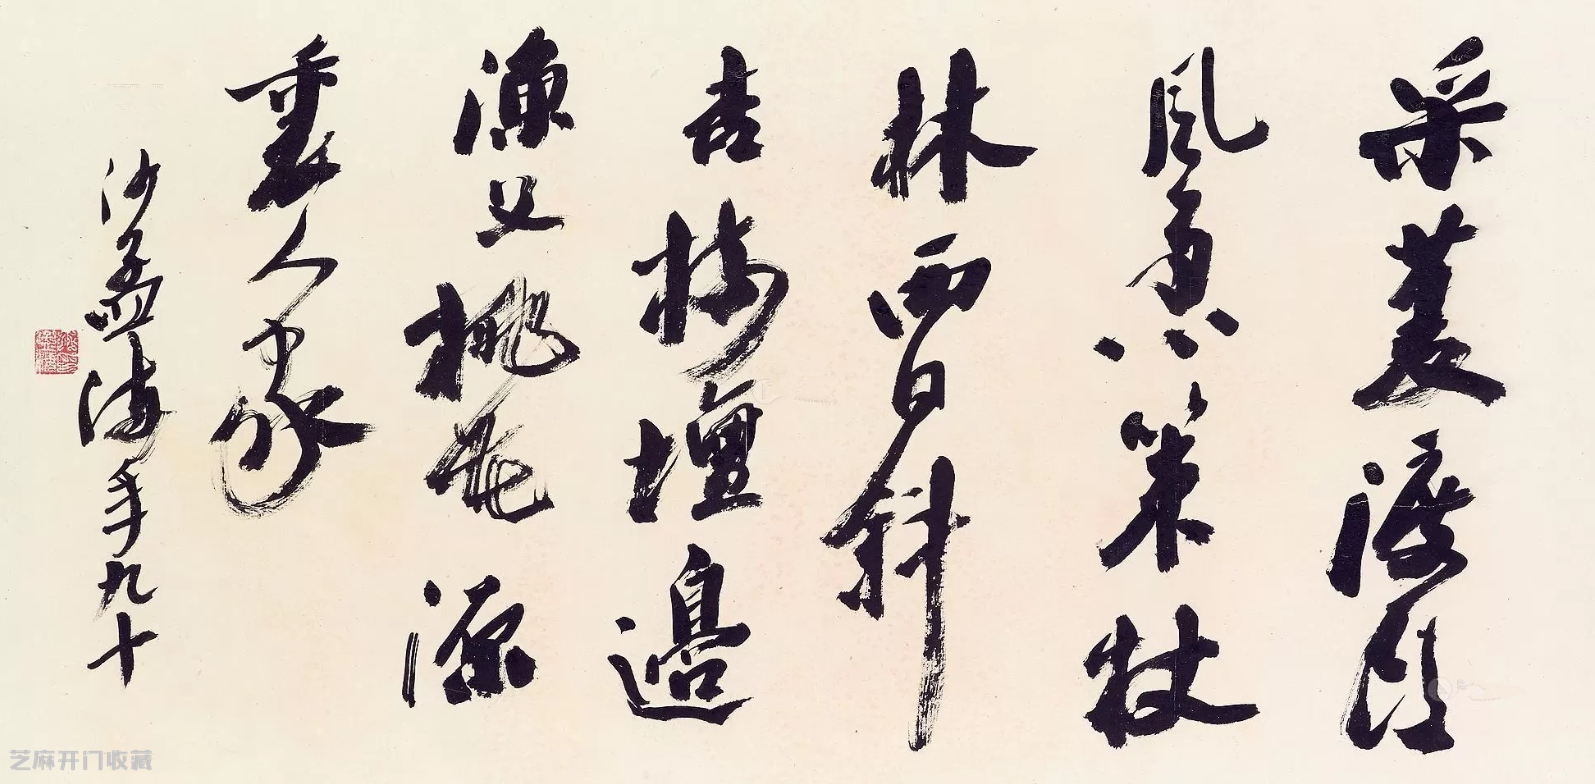 采菱渡頭
風急策杖
林西日斜
杏樹壇邊
漁父桃花源
裏人家
沙孟海年九十
芝麻开门收藏